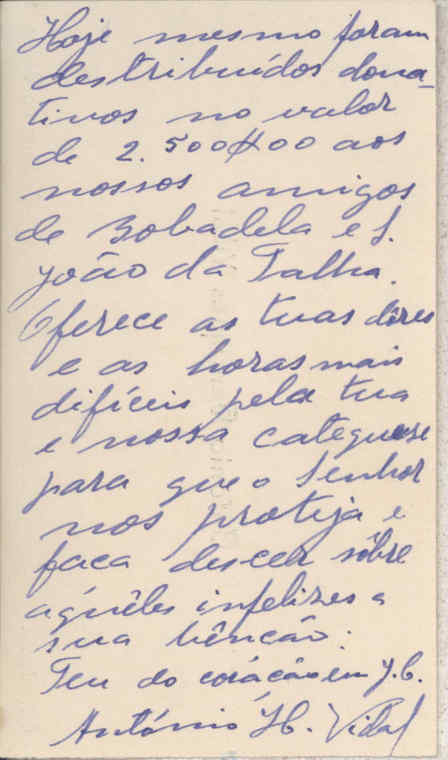 Hoje mesmo foram
destribuídos dona-
tivos no valor
de 2.500$00 aos
nossos amigos
de Bobadela e S.
João da Talha.
Oferece as tuas dôres
e as horas mais
difíceis pela tua
e nossa catequese
para que o Senhor
nos proteja e
faça descer sôbre
aquêles infelizes a
sua bênção.
Teu do coração em J.C.
António H. Vidal